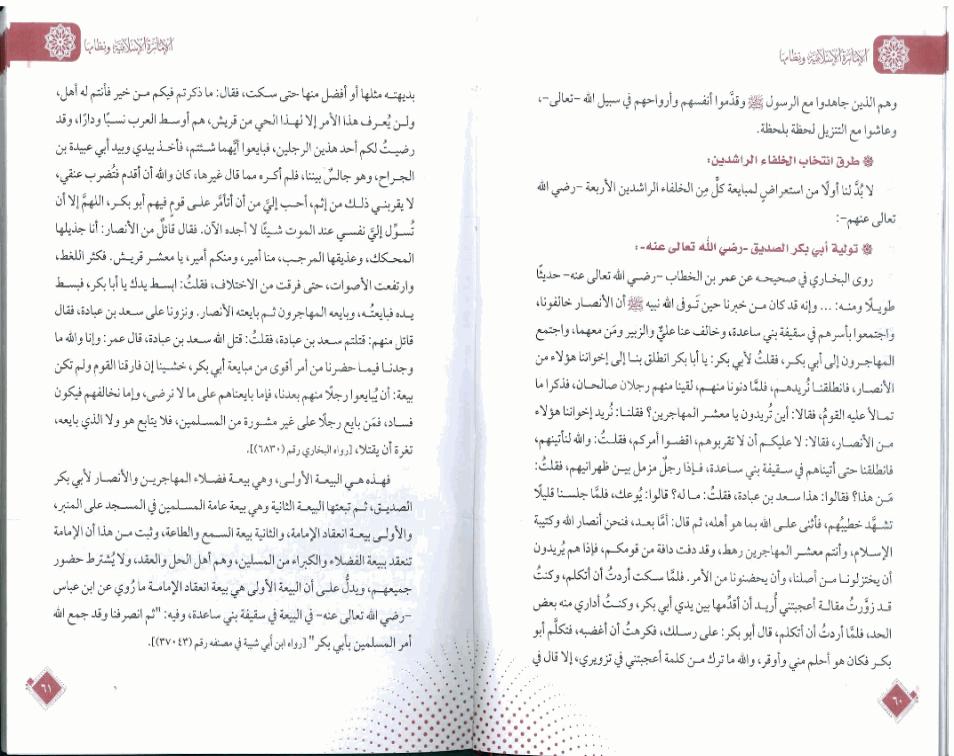 الإمارة الإسلامية ونظامها
وهم الذين جاهدوا مع الرسول ﷺ وقدَّموا أنفسهم وأرواحهم في سبيل الله -تعالى-،
وعاشوا مع التنزيل لحظة بلحظة.
طرق انتخاب الخلفاء الراشدين:
لا بُدَّ لنا أولًا من استعراضٍ لمبايعة كلٍّ مِن الخلفاء الراشدين الأربعة -رضي الله
تعالى عنهم-:
تولية أبي بكر الصديق -رضي الله تعالى عنه-:
روى البخاري في صحيحه عن عمر بن الخطاب -رضي الله تعالى عنه- حديثًا
طويلًا ومنه: ... وإنه قد كان مِن خبرنا حين تَوفى الله نبيه ﷺ أن الأنصار خالفونا،
واجتمعوا بأسرهم في سقيفة بني ساعدة، وخالف عنا عليٌّ والزبير ومَن معهما، واجتمع
المهاجرون إلى أبي بكر، فقلتُ لأبي بكر: يا أبا بكر انطلق بنا إلى إخواننا هؤلاء من
الأنصار، فانطلقنا نُريدهم، فلمَّا دنونا منهم، لقينا منهم رجلان صالحان، فذكرا ما
تمالأ عليه القومُ، فقالا: أين تُريدون يا معشر المهاجرين؟ فقلنا: نُريد إخواننا هؤلاء
مِن الأنصار، فقالا: لا عليكم أن لا تقربوهم، اقضوا أمركم، فقلتُ: والله لنأتينهم،
فانطلقنا حتى أتيناهم في سقيفة بني ساعدة، فإذا رجلٌ مزمل بين ظهرانيهم، فقلتُ:
مَن هذا؟ فقالوا: هذا سعد بن عبادة، فقلتُ: ما له؟ قالوا: يُوعك، فلمَّا جلسنا قليلًا
تشهَّد خطيبُهم، فأثنى على الله بما هو أهله، ثم قال: أمَّا بعد، فنحن أنصار الله وكتيبة
الإسلام، وأنتم معشر المهاجرين رهط، وقد دفت دافة من قومكم، فإذا هم يُريدون
أن يختزلونا من أصلنا، وأن يحضنونا من الأمر. فلمَّا سكت أردتُ أن أتكلم، وكنتُ
قد زوَّرتُ مقالة أعجبتني أُريد أن أقدِّمها بين يدي أبي بكر، وكنتُ أداري منه بعض
الحد، فلمَّا أردتُ أن أتكلم، قال أبو بكر: على رسلك، فكرهتُ أن أغضبه، فتكلَّم أبو
بكر فكان هو أحلم مني وأوقر، والله ما ترك من كلمة أعجبتني في تزويري، إلا قال في
٦٠
الإمارة الإسلامية ونظامها
بديهته مثلها أو أفضل منها حتى سكت، فقال: ما ذكرتم فيكم من خير فأنتم له أهل،
ولن يُعرف هذا الأمر إلا لهذا الحي من قريش، هم أوسط العرب نسبًا ودارًا، وقد
رضيتُ لكم أحد هذين الرجلين، فبايعوا أيَّهما شئتم، فأخذ بيدي وبيد أبي عبيدة بن
الجراح، وهو جالسٌ بيننا، فلم أكره مما قال غيرها، كان والله أن أقدم فتُضرب عنقي،
لا يقربني ذلك من إثم، أحب إليَّ من أن أتأمَّر على قومٍ فيهم أبو بكر، اللهمَّ إلا أن
تُسوِّل إليَّ نفسي عند الموت شيئًا لا أجده الآن. فقال قائلٌ من الأنصار: أنا جذيلها
المحكك، وعذيقها المرجب، منا أمير، ومنكم أمير، يا معشر قريش. فكثر اللغط،
وارتفعت الأصوات، حتى فرقت من الاختلاف، فقلتُ: ابسط يدك يا أبا بكر، فبسط
يده فبايعتُه، وبايعه المهاجرون ثم بايعته الأنصار. ونزونا على سعد بن عبادة، فقال
قائل منهم: قتلتم سعد بن عبادة، فقلتُ: قتل الله سعد بن عبادة، قال عمر: وإنا والله ما
وجدنا فيما حضرنا من أمر أقوى من مبايعة أبي بكر، خشينا إن فارقنا القوم ولم تكن
بيعة: أن يُبايعوا رجلًا منهم بعدنا، فإما بايعناهم على ما لا نرضى، وإما نخالفهم فيكون
فساد، فمَن بايع رجلًا على غير مشورة من المسلمين، فلا يتابع هو ولا الذي بايعه،
تغرة أن يقتلا، [رواه البخاري رقم (٦٨٣٠)].
فهذه هي البيعة الأولى، وهي بيعة فضلاء المهاجرين والأنصار لأبي بكر
الصديق، ثم تبعتها البيعة الثانية وهي بيعة عامة المسلمين في المسجد على المنبر،
والأولى بيعة انعقاد الإمامة، والثانية بيعة السمع والطاعة، وثبت من هذا أن الإمامة
تنعقد ببيعة الفضلاء والكبراء من المسلين، وهم أهل الحل والعقد، ولا يُشترط حضور
جميعهم، ويدلُّ على أن البيعة الأولى هي بيعة انعقاد الإمامة ما رُوي عن ابن عباس
-رضي الله تعالى عنه- في البيعة في سقيفة بني ساعدة، وفيه: "ثم انصرفنا وقد جمع الله
أمر المسلمين بأبي بكر" [رواه ابن أبي شيبة في مصنفه رقم (٣٧٠٤٣)].
٦١